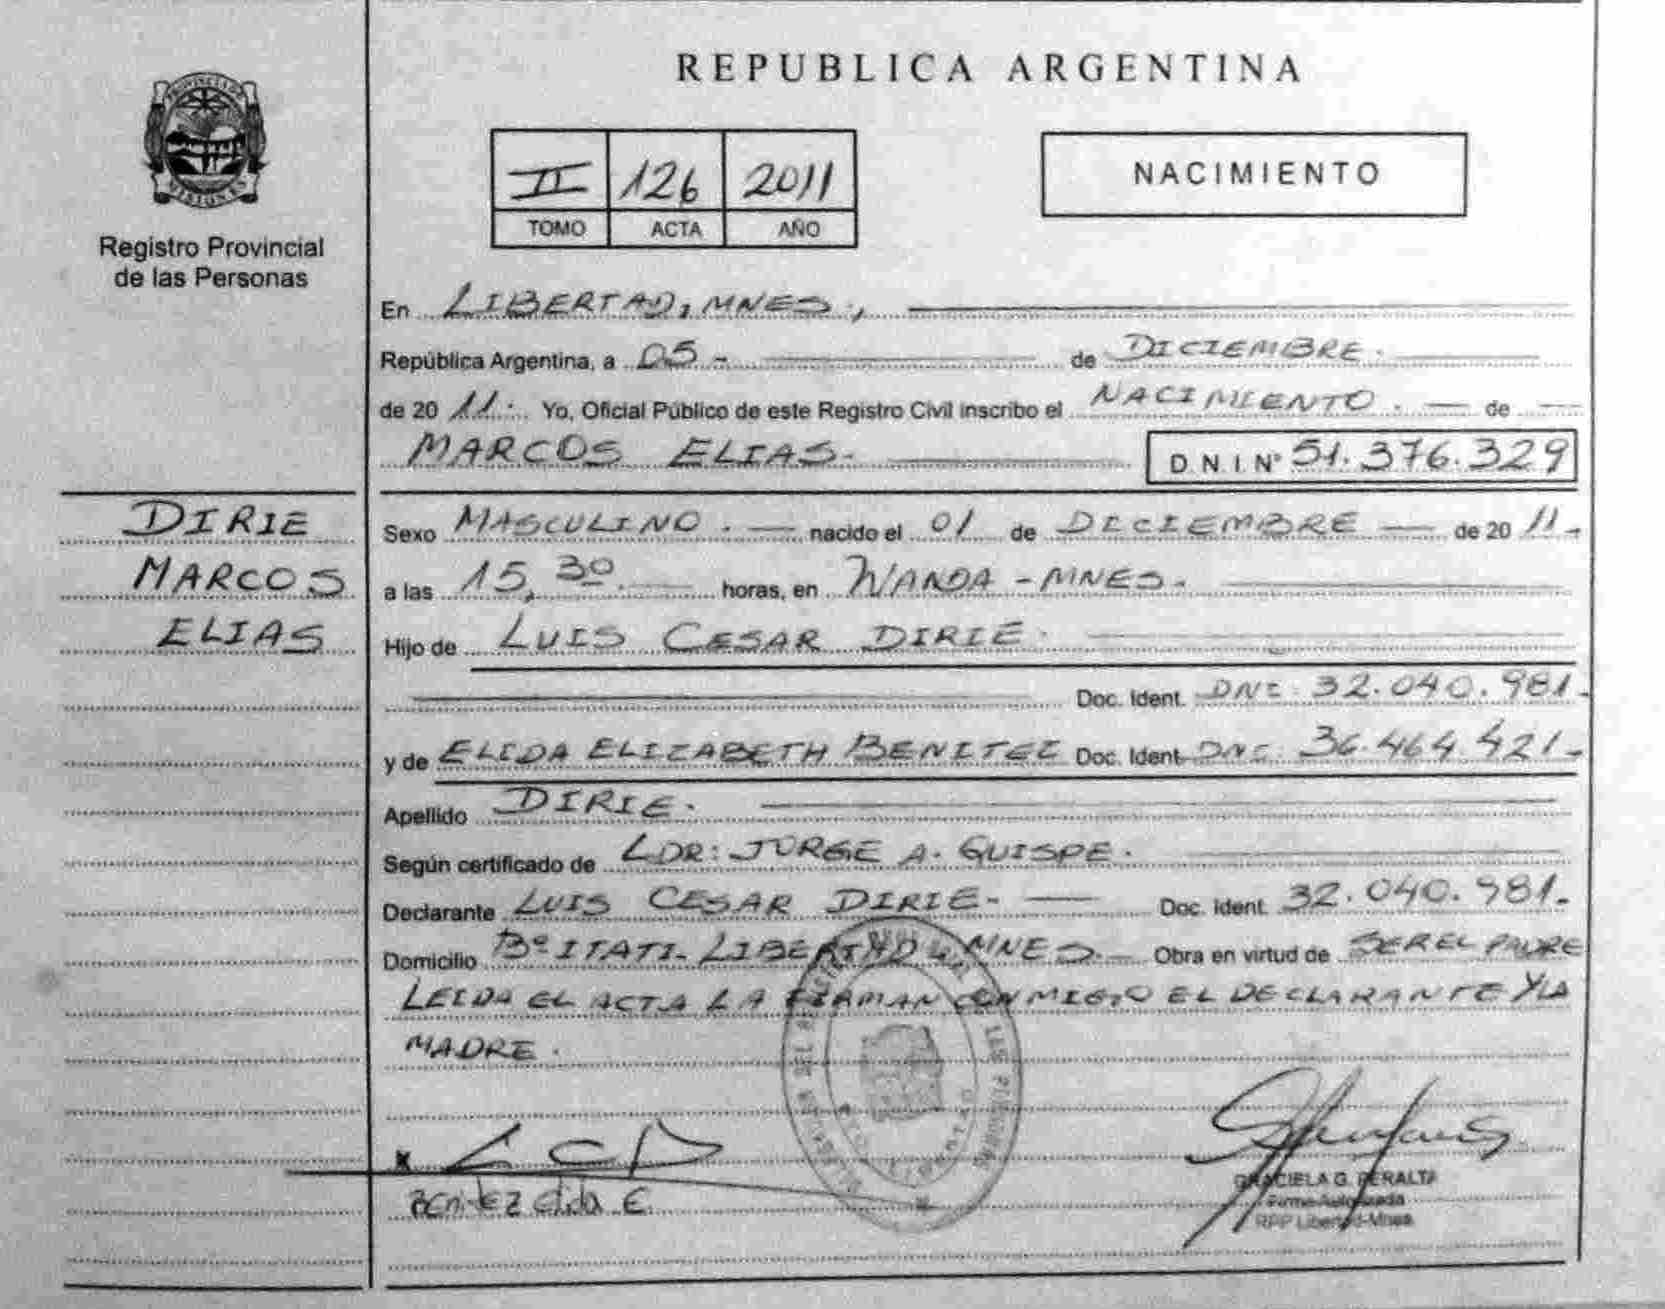 REPUBLICA ARGENTINA
PROVINCIA DE
MISIONES
Registro Provincial
de las Personas
II 126 2011
TOMO ACTA AÑO
NACIMIENTO
En LIBERTAD, MNES,
República Argentina, a 05.- de DICIEMBRE.
de 20 11. Yo, Oficial Público de este Registro Civil inscribo el NACIMIENTO. de
MARCOS ELIAS. D.N.I. N° 51.376.329
DIRIE
MARCOS
ELIAS
Sexo MASCULINO. nacido el 01 de DICIEMBRE de 20 11.
a las 15,30 horas, en WANDA - MNES.
Hijo de LUIS CESAR DIRIE.
Doc. Ident. DNI: 32.040.981.
y de ELIDA ELIZABETH BENITEZ Doc. Ident. DNI: 36.464.421.
Apellido DIRIE.
Según certificado de LDR: JORGE A. QUISPE.
Declarante LUIS CESAR DIRIE. Doc. Ident. 32.040.981.
Domicilio B° ITATI- LIBERTAD, MNES. Obra en virtud de SER EL PADRE
LEIDA EL ACTA LA FIRMAN CONMIGO EL DECLARANTE Y LA
MADRE.
x LCD
Benitez elida E
GRACIELA G. PERALTA
Firma Autorizada
RPP Libertad-Mnes